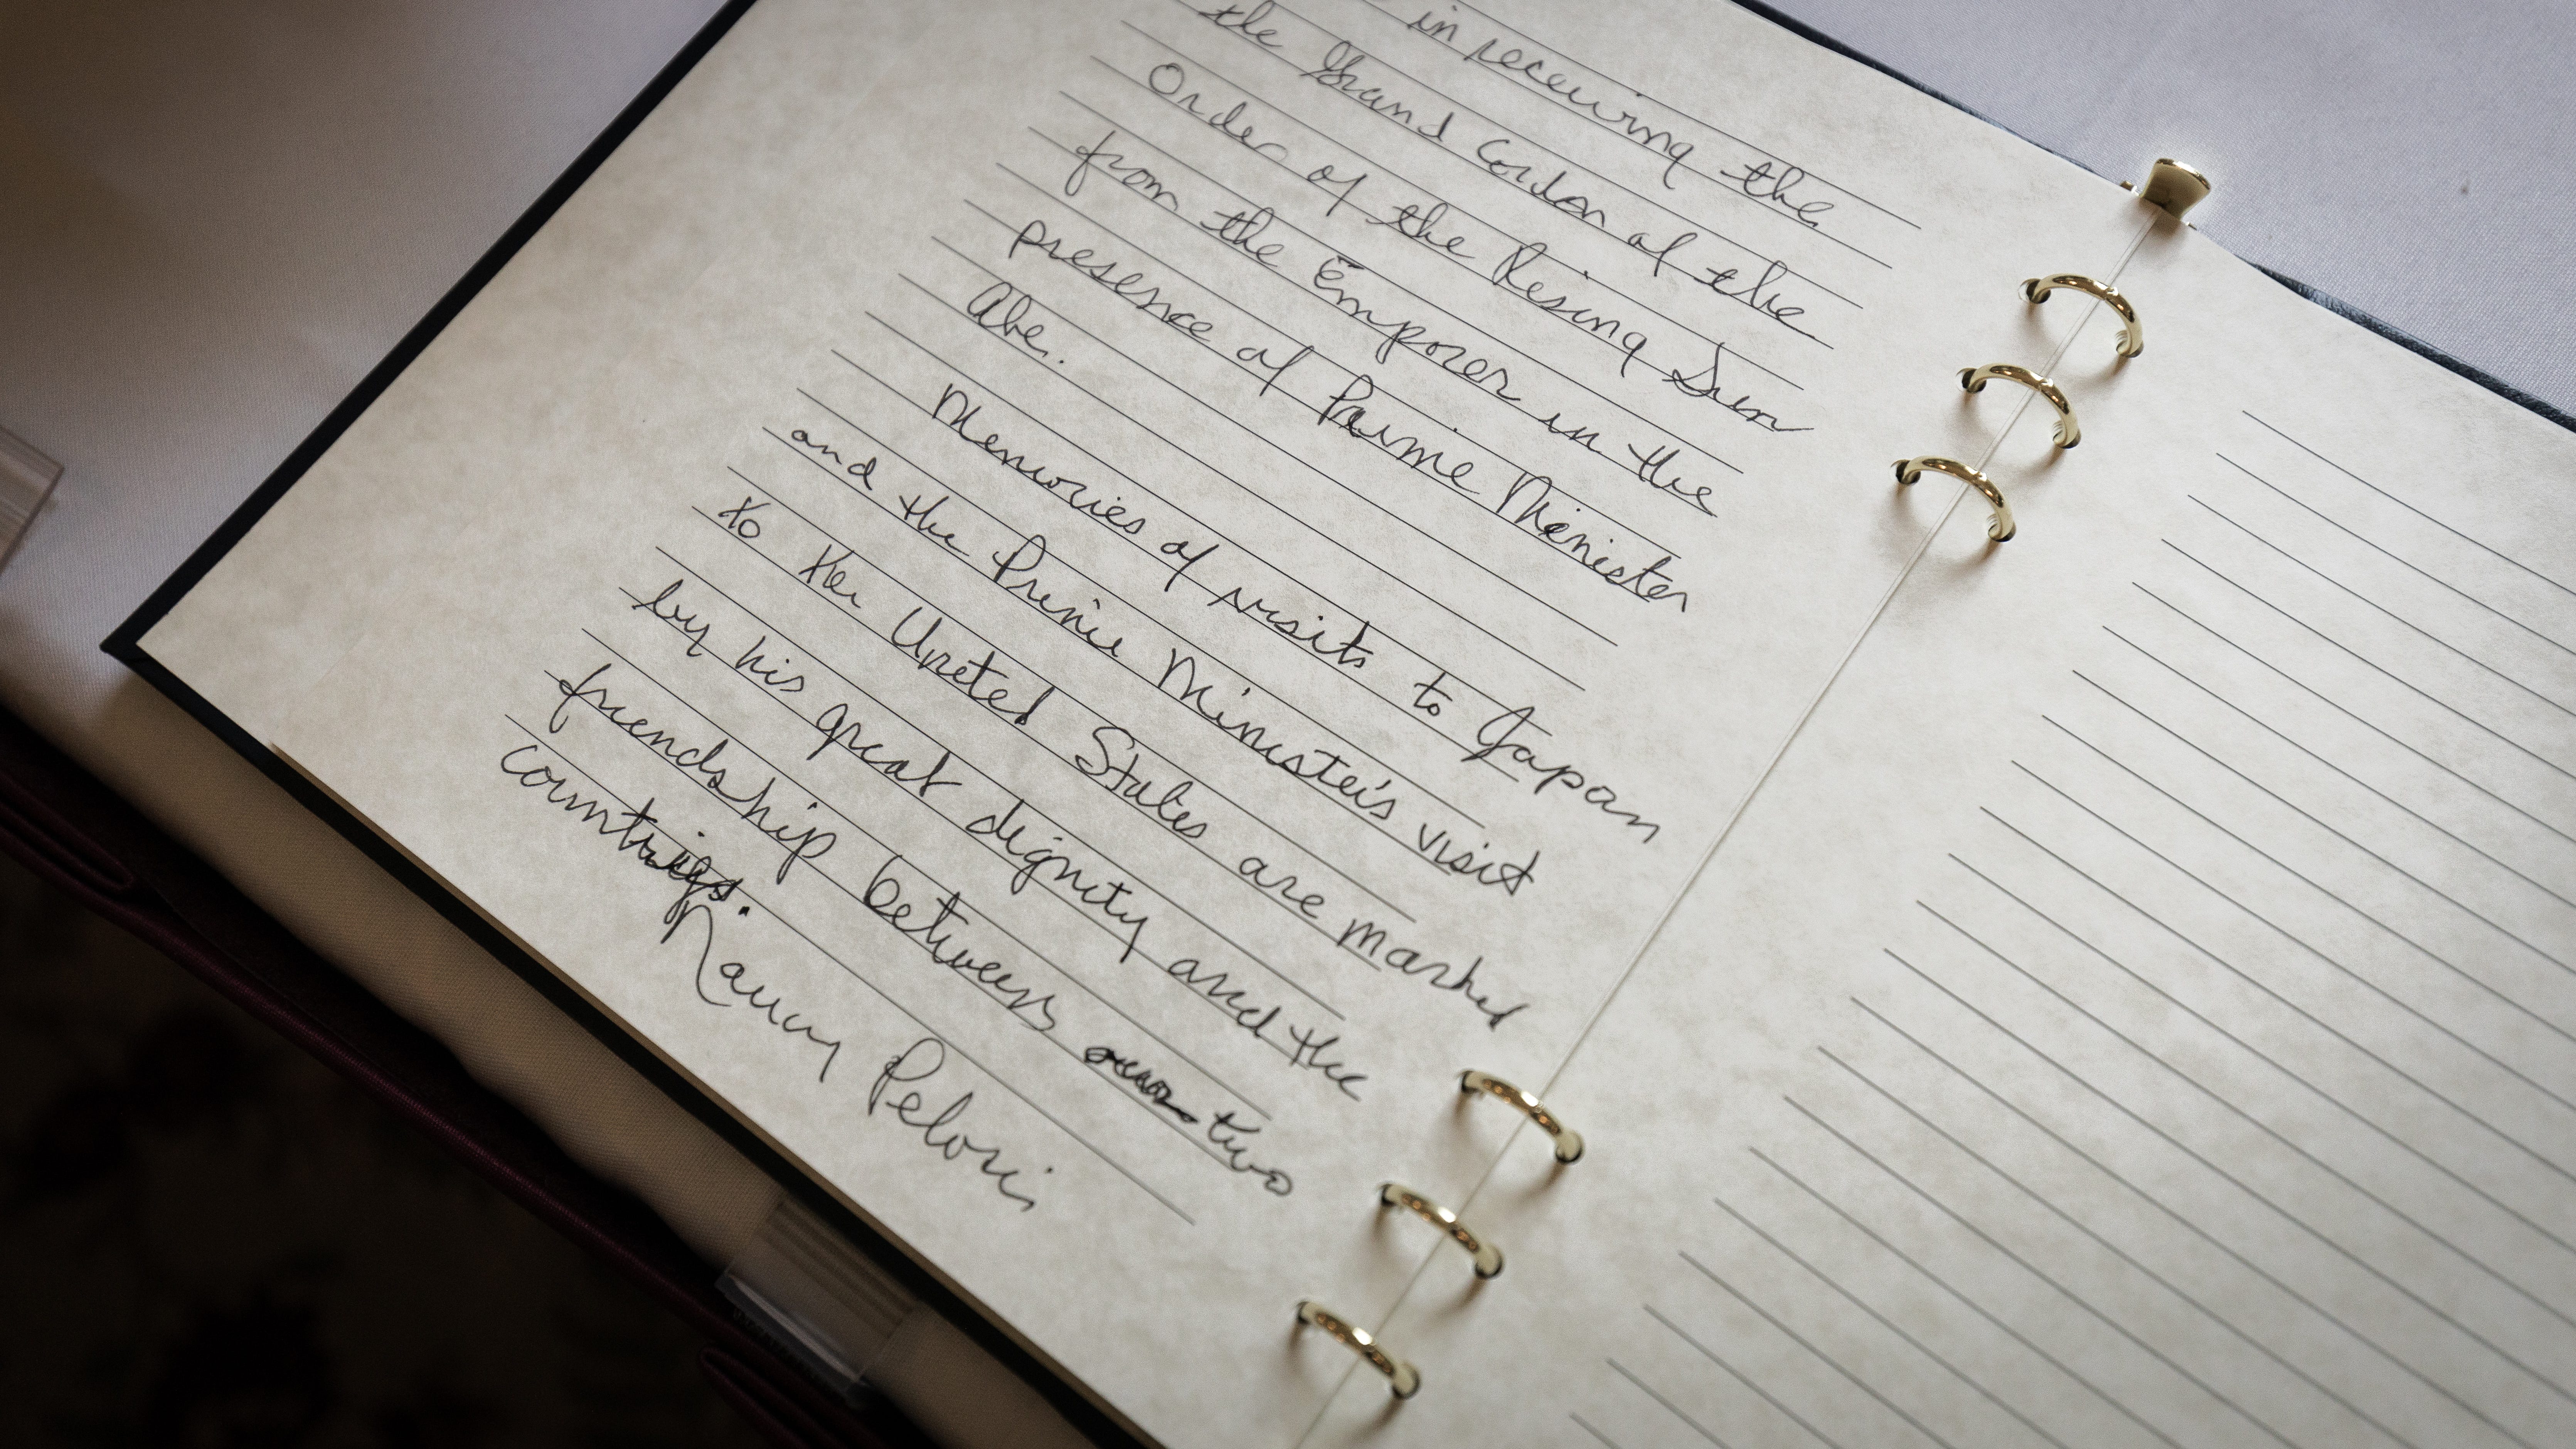 in receiving the
the Grand Cordon of the
Order of the Rising Sun
from the Emporer in the
presence of Prime Minister
Abe.
Memories of visits to Japan
and the Prime Minister's visit
to the United States are marked
by his great dignity and the
friendship between two
countries.
Nancy Pelosi